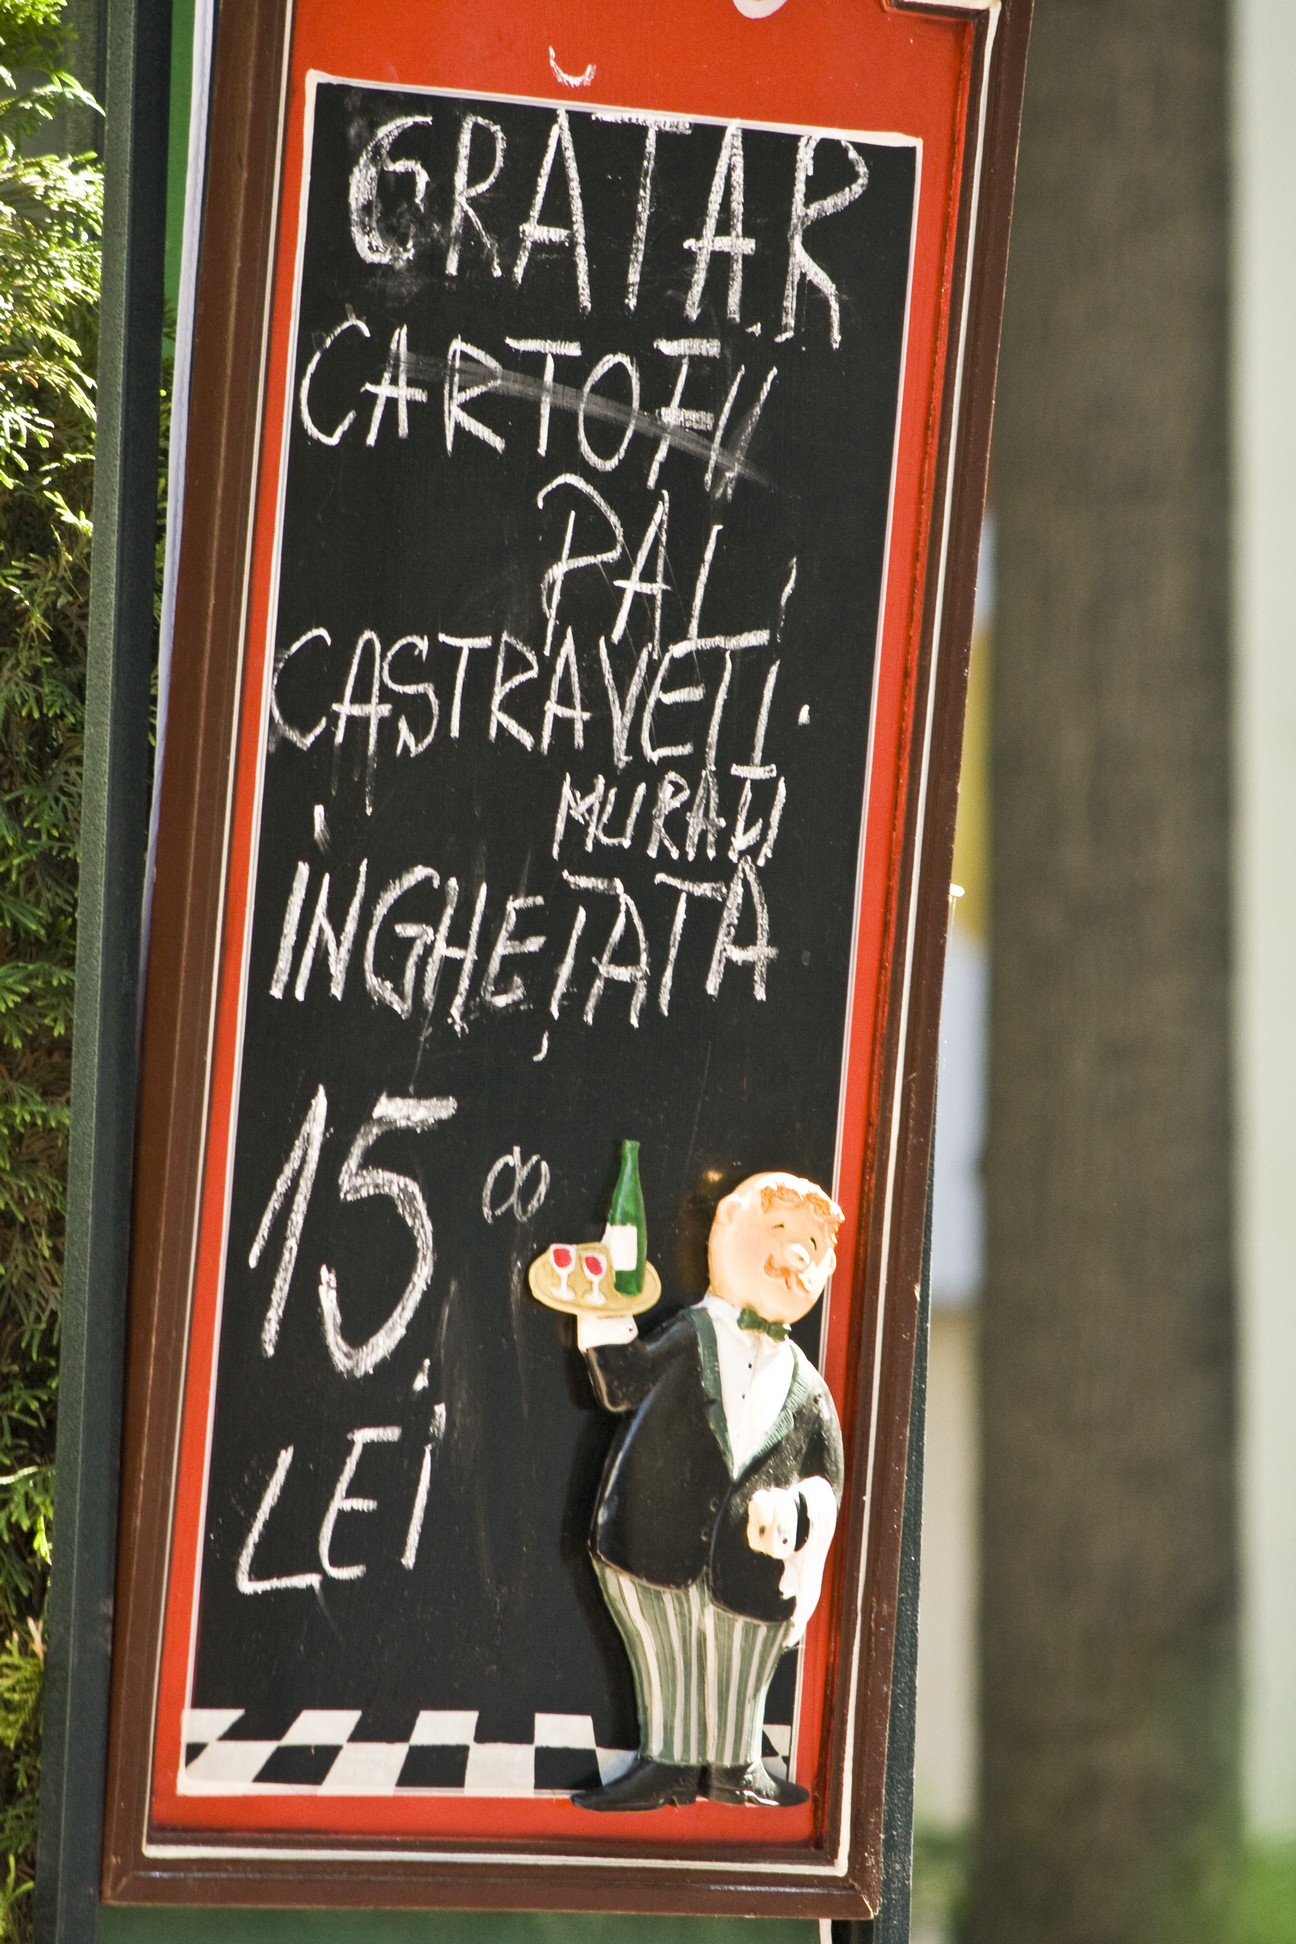 GRĂTAR
CARTOFII
PAI
CASTRAVEȚI
MURAȚI
ÎNGHEȚATA
15,00
LEI